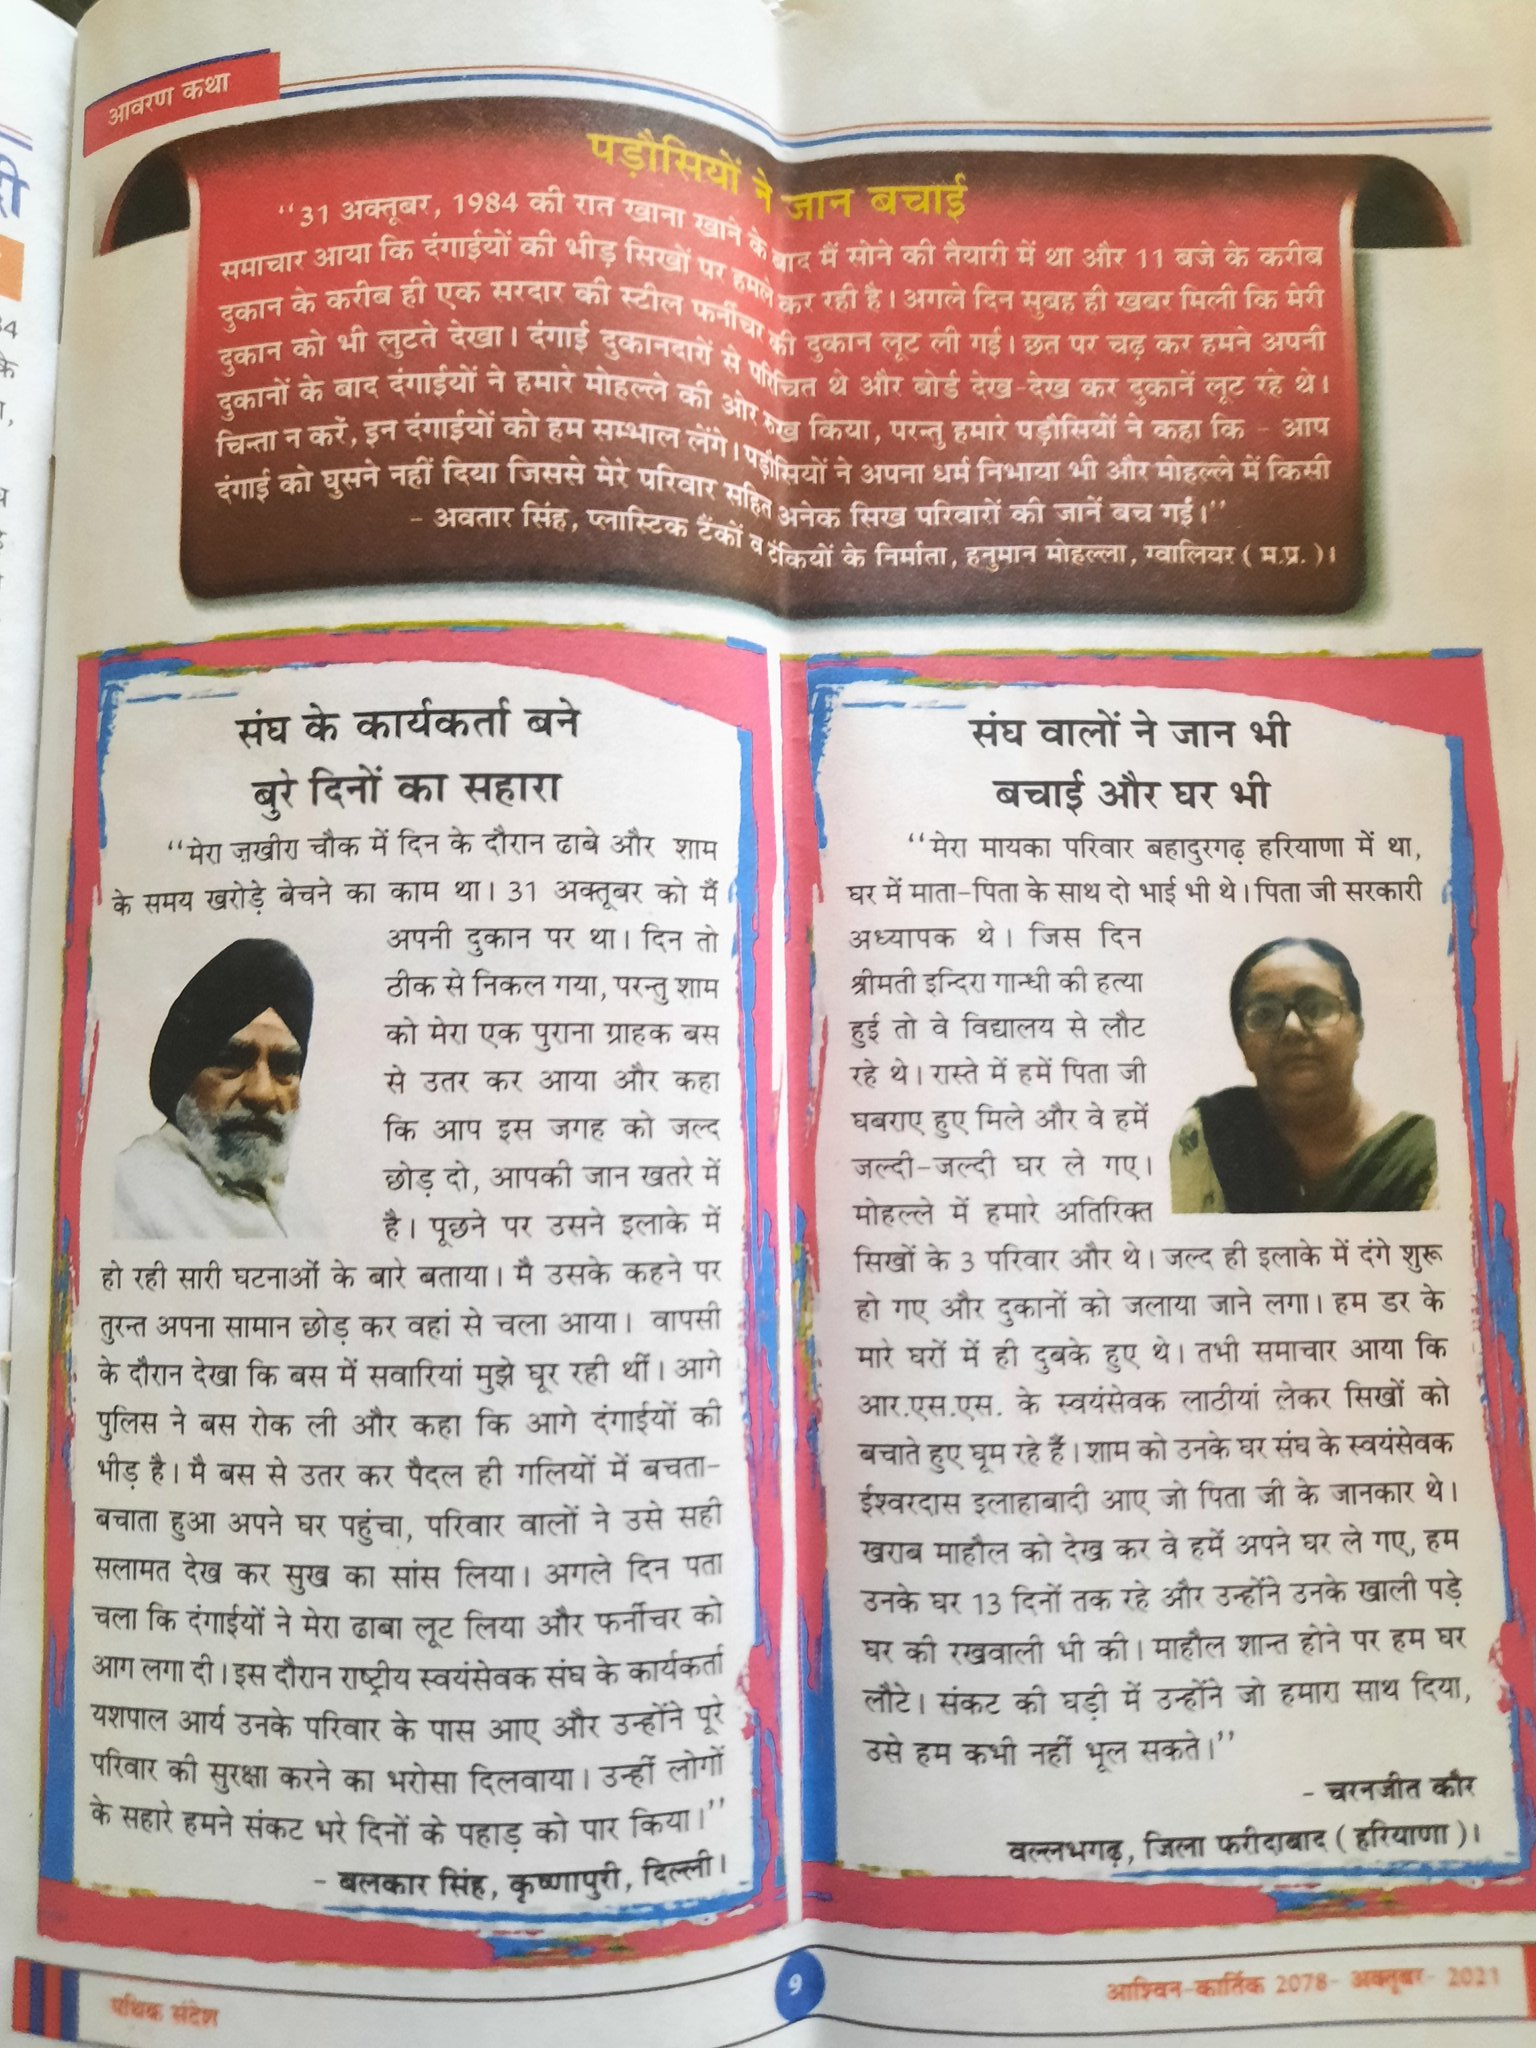 आवरण कथा
पड़ौसियों ने जान बचाई
‘‘31 अक्तूबर, 1984 की रात खाना खाने के बाद मैं सोने की तैयारी में था और 11 बजे के करीब
समाचार आया कि दंगाईयों की भीड़ सिखों पर हमले कर रही है। अगले दिन सुबह ही खबर मिली कि मेरी
दुकान के करीब ही एक सरदार की स्टील फर्नीचर की दुकान लूट ली गई। छत पर चढ़ कर हमने अपनी
दुकान को भी लुटते देखा। दंगाई दुकानदारों से परिचित थे और बोर्ड देख-देख कर दुकानें लूट रहे थे।
दुकानों के बाद दंगाईयों ने हमारे मोहल्ले की ओर रुख किया, परन्तु हमारे पड़ौसियों ने कहा कि - आप
चिन्ता न करें, इन दंगाईयों को हम सम्भाल लेंगे। पड़ौसियों ने अपना धर्म निभाया भी और मोहल्ले में किसी
दंगाई को घुसने नहीं दिया जिससे मेरे परिवार सहित अनेक सिख परिवारों की जानें बच गईं।’’
- अवतार सिंह, प्लास्टिक टैंकों व टंकियों के निर्माता, हनुमान मोहल्ला, ग्वालियर ( म.प्र. )।
संघ के कार्यकर्ता बने
बुरे दिनों का सहारा
‘‘मेरा ज़खीरा चौक में दिन के दौरान ढाबे और शाम
के समय खरोड़े बेचने का काम था। 31 अक्तूबर को मैं
अपनी दुकान पर था। दिन तो
ठीक से निकल गया, परन्तु शाम
को मेरा एक पुराना ग्राहक बस
से उतर कर आया और कहा
कि आप इस जगह को जल्द
छोड़ दो, आपकी जान खतरे में
है। पूछने पर उसने इलाके में
हो रही सारी घटनाओं के बारे बताया। मै उसके कहने पर
तुरन्त अपना सामान छोड़ कर वहां से चला आया। वापसी
के दौरान देखा कि बस में सवारियां मुझे घूर रही थीं। आगे
पुलिस ने बस रोक ली और कहा कि आगे दंगाईयों की
भीड़ है। मै बस से उतर कर पैदल ही गलियों में बचता-
बचाता हुआ अपने घर पहुंचा, परिवार वालों ने उसे सही
सलामत देख कर सुख का सांस लिया। अगले दिन पता
चला कि दंगाईयों ने मेरा ढाबा लूट लिया और फर्नीचर को
आग लगा दी। इस दौरान राष्ट्रीय स्वयंसेवक संघ के कार्यकर्ता
यशपाल आर्य उनके परिवार के पास आए और उन्होंने पूरे
परिवार की सुरक्षा करने का भरोसा दिलवाया। उन्हीं लोगों
के सहारे हमने संकट भरे दिनों के पहाड़ को पार किया।’’
- बलकार सिंह, कृष्णापुरी, दिल्ली।
संघ वालों ने जान भी
बचाई और घर भी
‘‘मेरा मायका परिवार बहादुरगढ़ हरियाणा में था,
घर में माता-पिता के साथ दो भाई भी थे। पिता जी सरकारी
अध्यापक थे। जिस दिन
श्रीमती इन्दिरा गान्धी की हत्या
हुई तो वे विद्यालय से लौट
रहे थे। रास्ते में हमें पिता जी
घबराए हुए मिले और वे हमें
जल्दी-जल्दी घर ले गए।
मोहल्ले में हमारे अतिरिक्त
सिखों के 3 परिवार और थे। जल्द ही इलाके में दंगे शुरू
हो गए और दुकानों को जलाया जाने लगा। हम डर के
मारे घरों में ही दुबके हुए थे। तभी समाचार आया कि
आर.एस.एस. के स्वयंसेवक लाठीयां लेकर सिखों को
बचाते हुए घूम रहे हैं। शाम को उनके घर संघ के स्वयंसेवक
ईश्वरदास इलाहाबादी आए जो पिता जी के जानकार थे।
खराब माहौल को देख कर वे हमें अपने घर ले गए, हम
उनके घर 13 दिनों तक रहे और उन्होंने उनके खाली पड़े
घर की रखवाली भी की। माहौल शान्त होने पर हम घर
लौटे। संकट की घड़ी में उन्होंने जो हमारा साथ दिया,
उसे हम कभी नहीं भूल सकते।’’
- चरनजीत कौर
वल्लभगढ़, जिला फरीदाबाद ( हरियाणा )।
पथिक संदेश
9
आश्विन-कार्तिक 2078- अक्तूबर- 2021